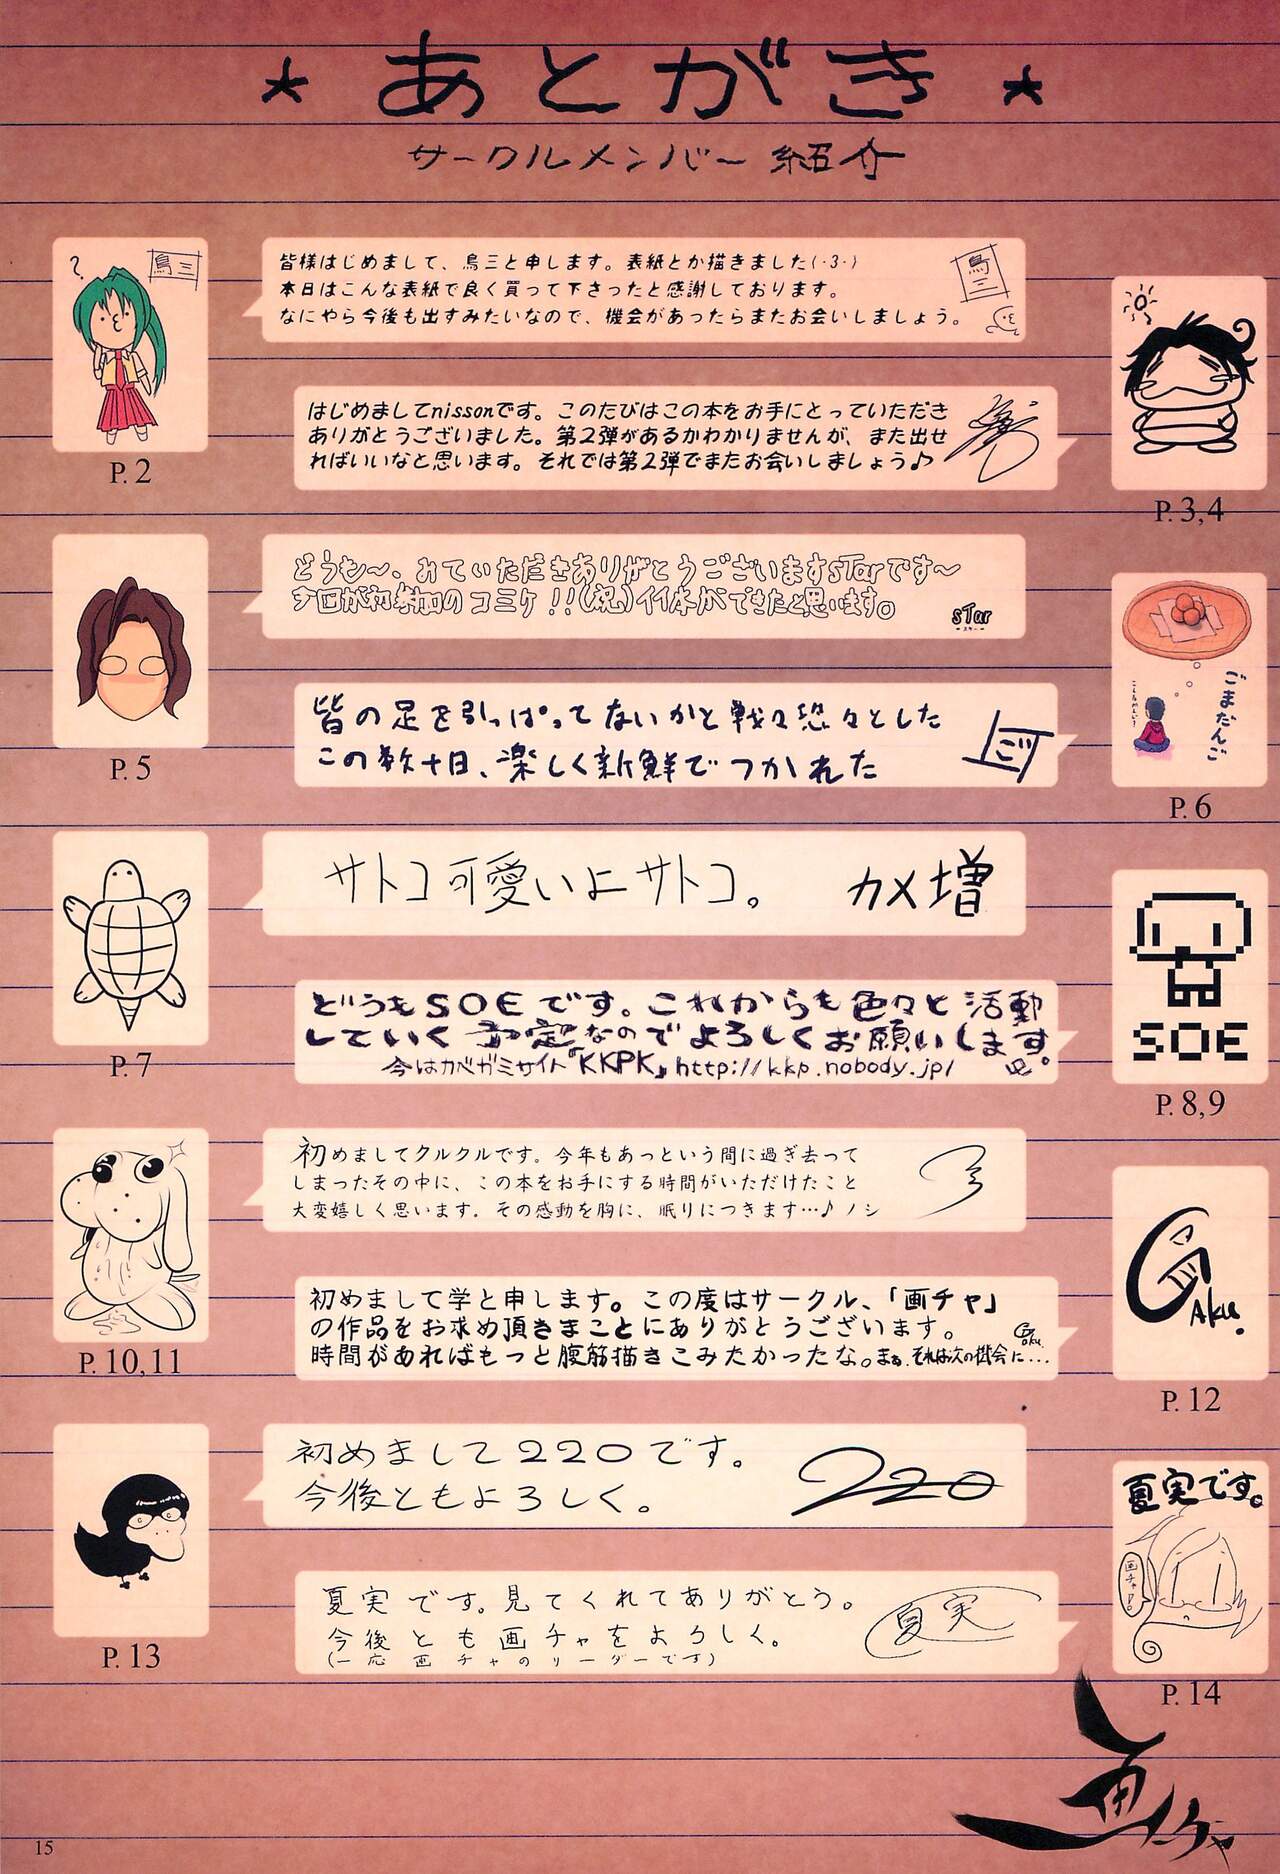 ★ あとがき ★
サークルメンバー紹介
?
鳥三
皆様はじめまして、鳥三と申します。表紙とか描きました(・3・)
本日はこんな表紙で良く買って下さったと感謝しております。
なにやら今後も出すみたいなので、機会があったらまたお会いしましょう。
鳥三
P. 2
はじめましてnissonです。このたびはこの本をお手にとっていただき
ありがとうございました。第2弾があるかわかりませんが、また出せ
ればいいなと思います。それでは第2弾でまたお会いしましょう♪
P. 3,4
どうも〜、みていただきありがとうございますsTarです〜
今回が初参加のコミケ!!(祝)イイ本ができたと思います。
sTar
-スター-
P. 5
皆の足を引っぱってないかと戦々恐々とした
この数十日、楽しく新鮮でつかれた
ごまだんご
P. 6
サトコ可愛いよサトコ。
カメ増
P. 7
どうもSOEです。これからも色々と活動
していく予定なのでよろしくお願いします。
今はカベガミサイト『KKPK』http://kkp.nobody.jp/
SOE
P. 8,9
初めましてクルクルです。今年もあっという間に過ぎ去って
しまったその中に、この本をお手にする時間がいただけたこと
大変嬉しく思います。その感動を胸に、眠りにつきます…♪ノシ
P. 10,11
初めまして学と申します。この度はサークル、「画チャ」
の作品をお求め頂きまことにありがとうございます。
時間があればもっと腹筋描きこみたかったな。まぁ、それは次の機会に...
Gaku.
GAKU.
P. 12
初めまして220です。
今後ともよろしく。
220
P. 13
夏実です。見てくれてありがとう。
今後とも画チャをよろしく。
(一応画チャのリーダーです)
夏実
夏実です。
P. 14
画チャ
15